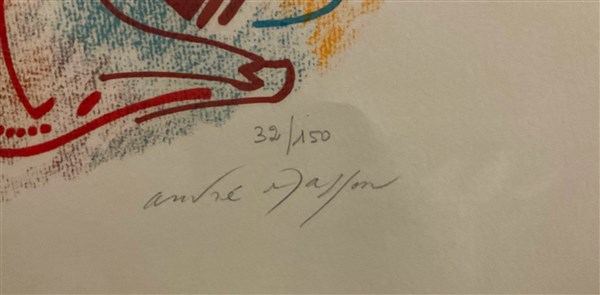 32/150
andré Masson